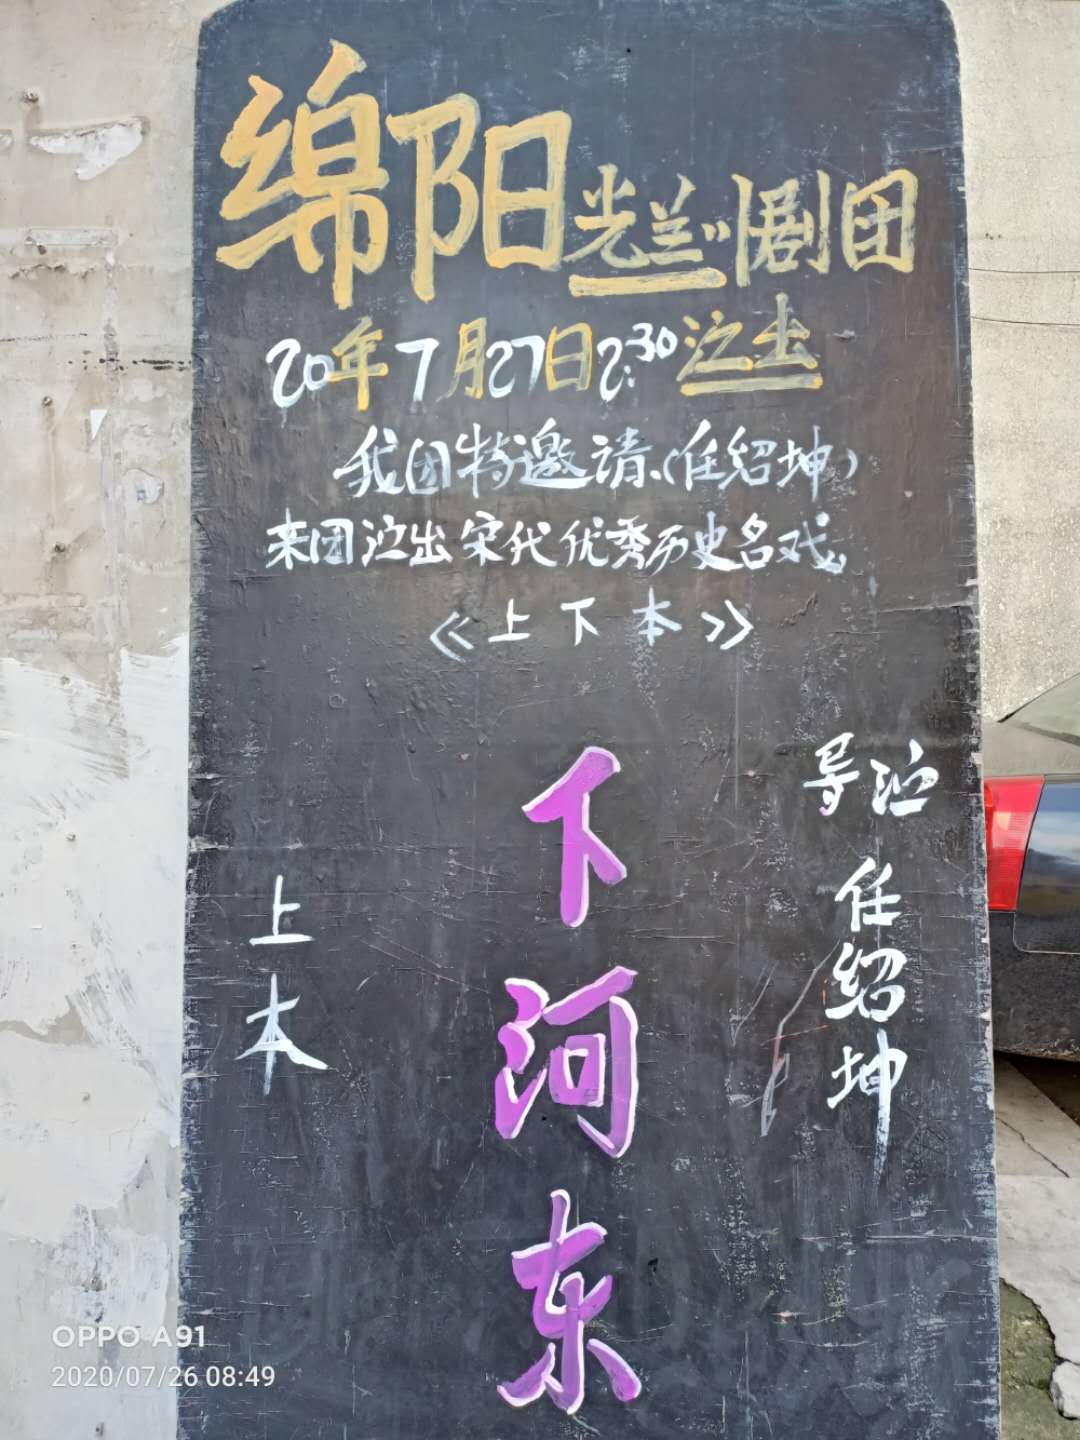 绵阳光兰川剧团
20年7月27日2:30泣出
我团特邀请(任绍坤)
来团泣出宋代优秀历史名戏。
《上下本》
导泣 任绍坤
下河东
上本
OPPO A91
2020/07/26 08:49